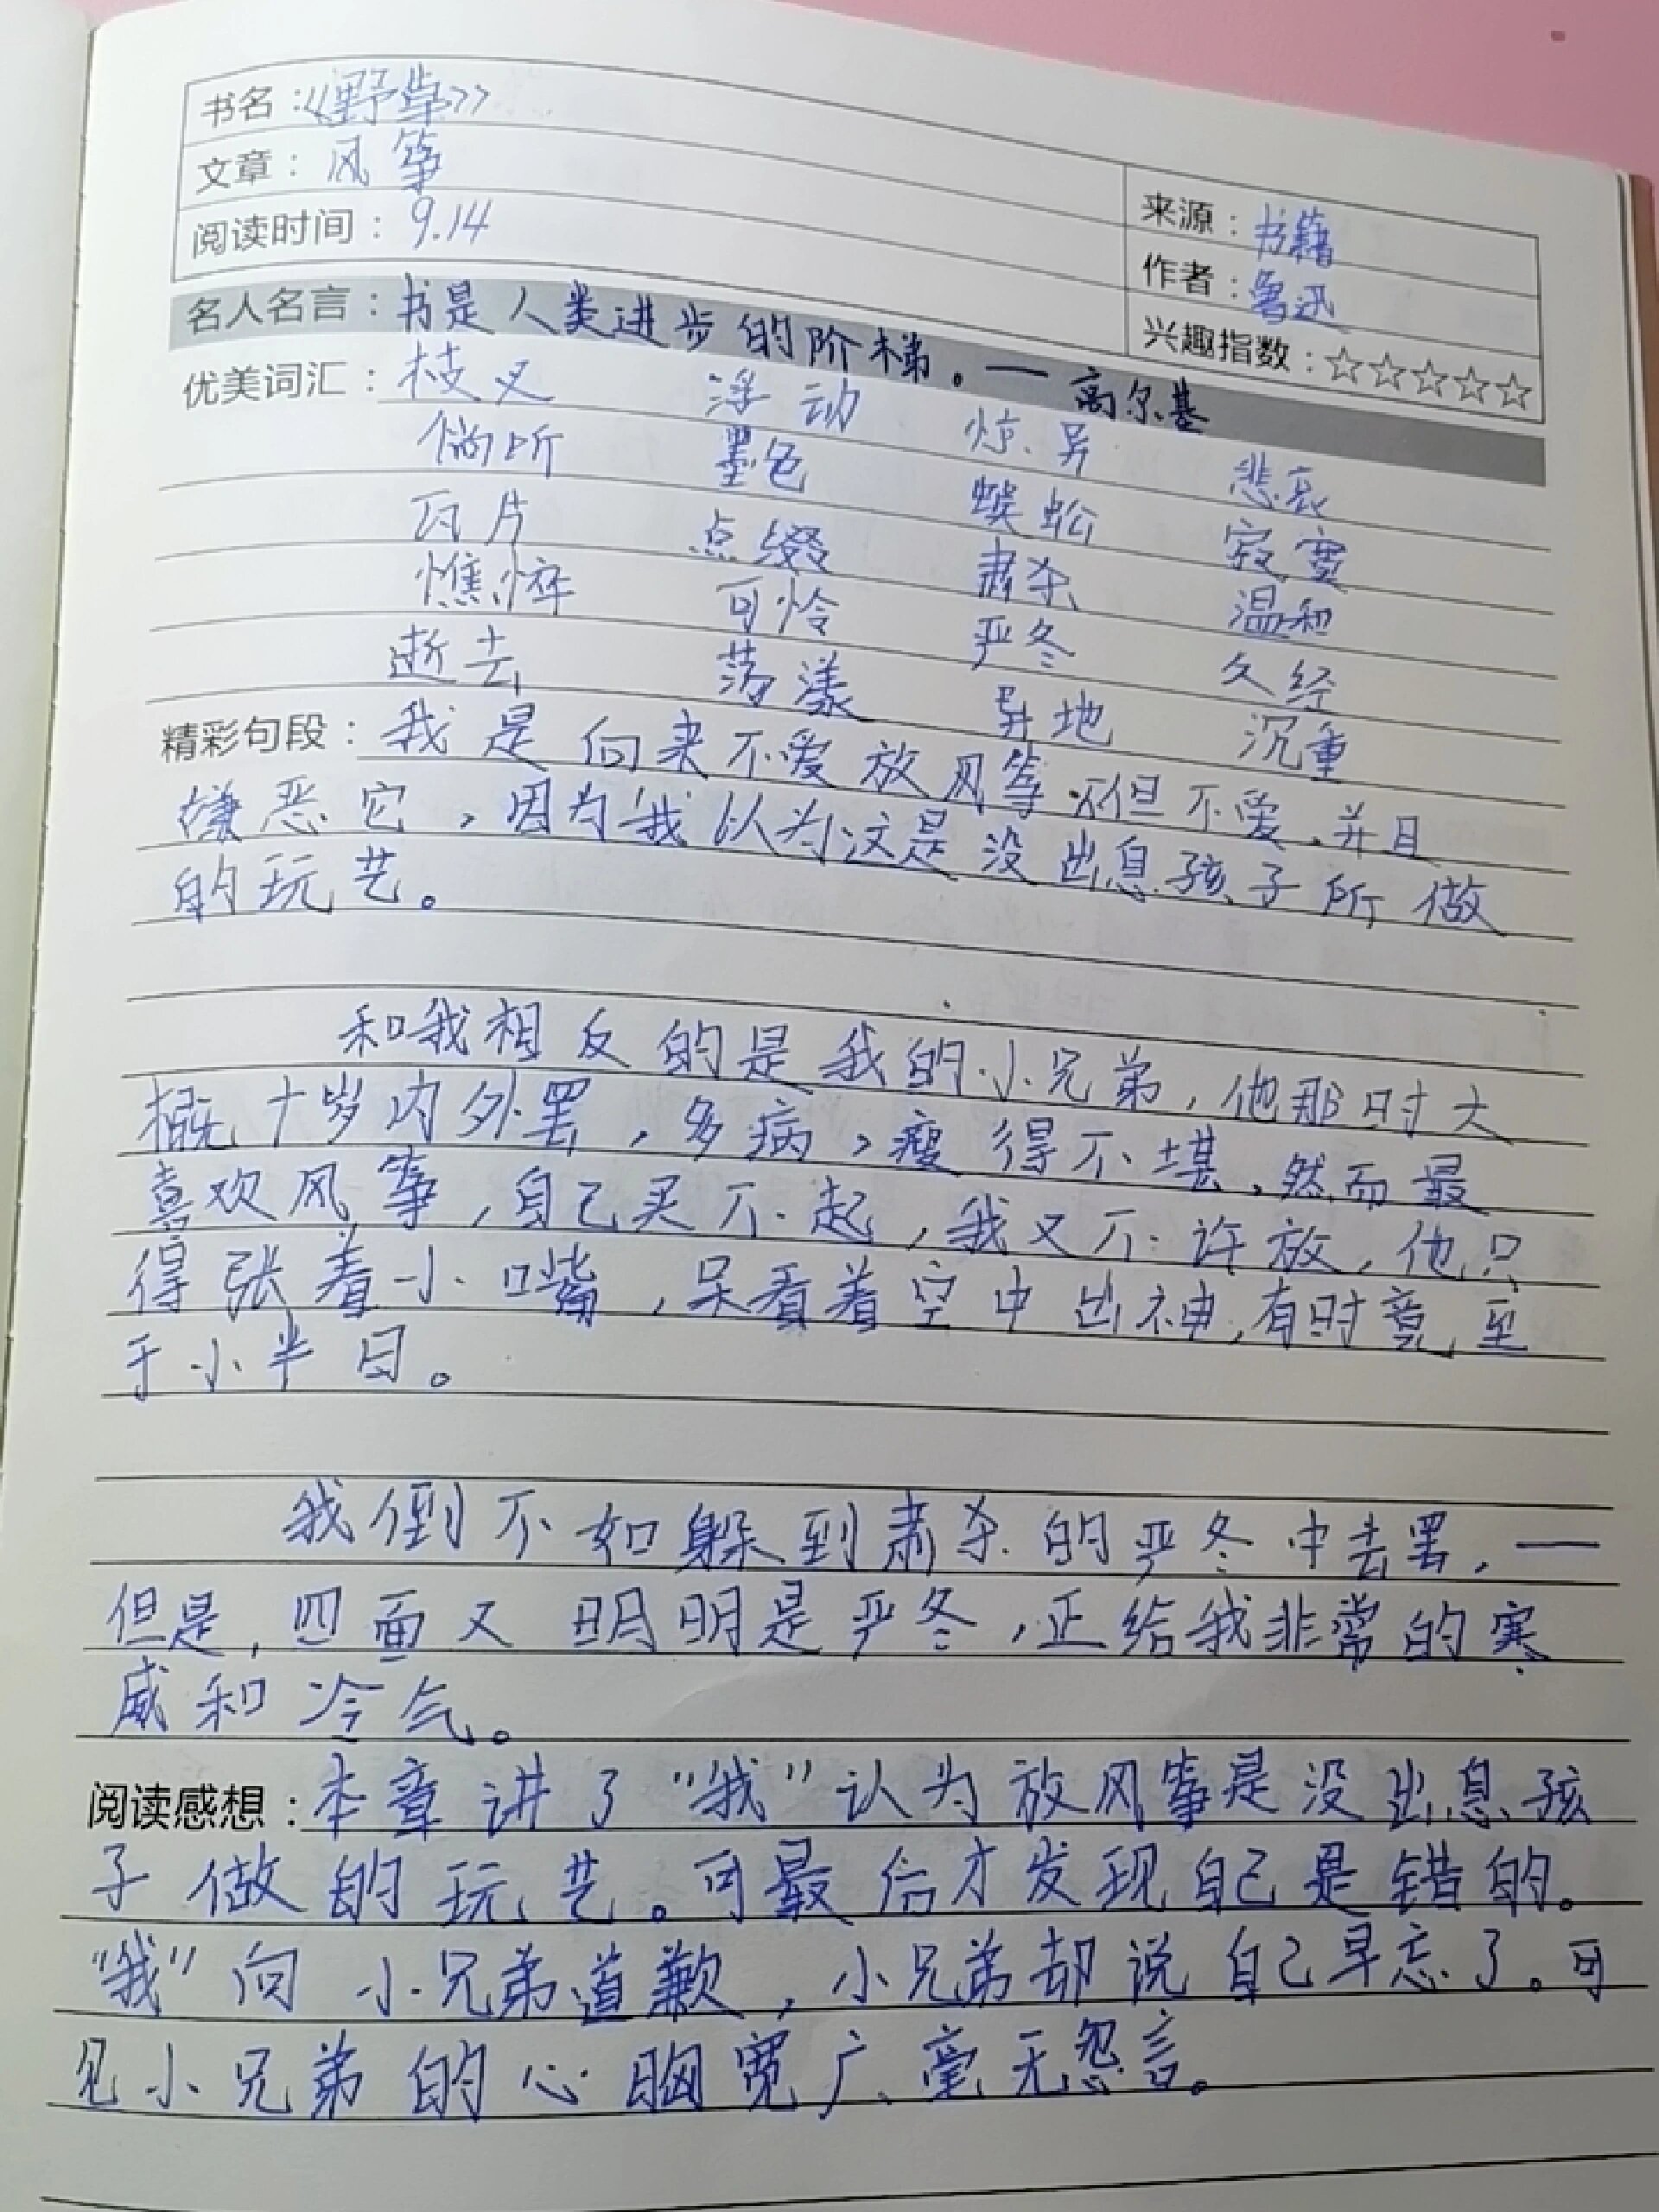 书名：《野草》
文章：风筝
阅读时间：9.14
来源：书籍
作者：鲁迅
兴趣指数：☆☆☆☆☆
名人名言：书是人类进步的阶梯。——高尔基
优美词汇：枝叉 浮动 惊异 悲哀
倘听 墨色 蜈蚣 寂寞
瓦片 点缀 肃杀 温和
憔悴 可怜 严冬 久经
逝去 荡漾 异地 沉重
精彩句段：我是向来不爱放风筝不但不爱，并且
嫌恶它，因为我认为这是没出息孩子所做
的玩艺。
和我相反的是我的小兄弟，他那时大
概十岁内外罢，多病，瘦得不堪，然而最
喜欢风筝，自己买不起，我又不许放，他只
得张着小嘴，呆看着空中出神，有时竟至
于小半日。
我倒不如躲到肃杀的严冬中去罢，——
但是，四面又明明是严冬，正给我非常的寒
威和冷气。
阅读感想：本章讲了“我”认为放风筝是没出息孩
子做的玩艺。可最后才发现自己是错的。
“我”向小兄弟道歉，小兄弟却说自己早忘了。可
见小兄弟的心胸宽广毫无怨言。